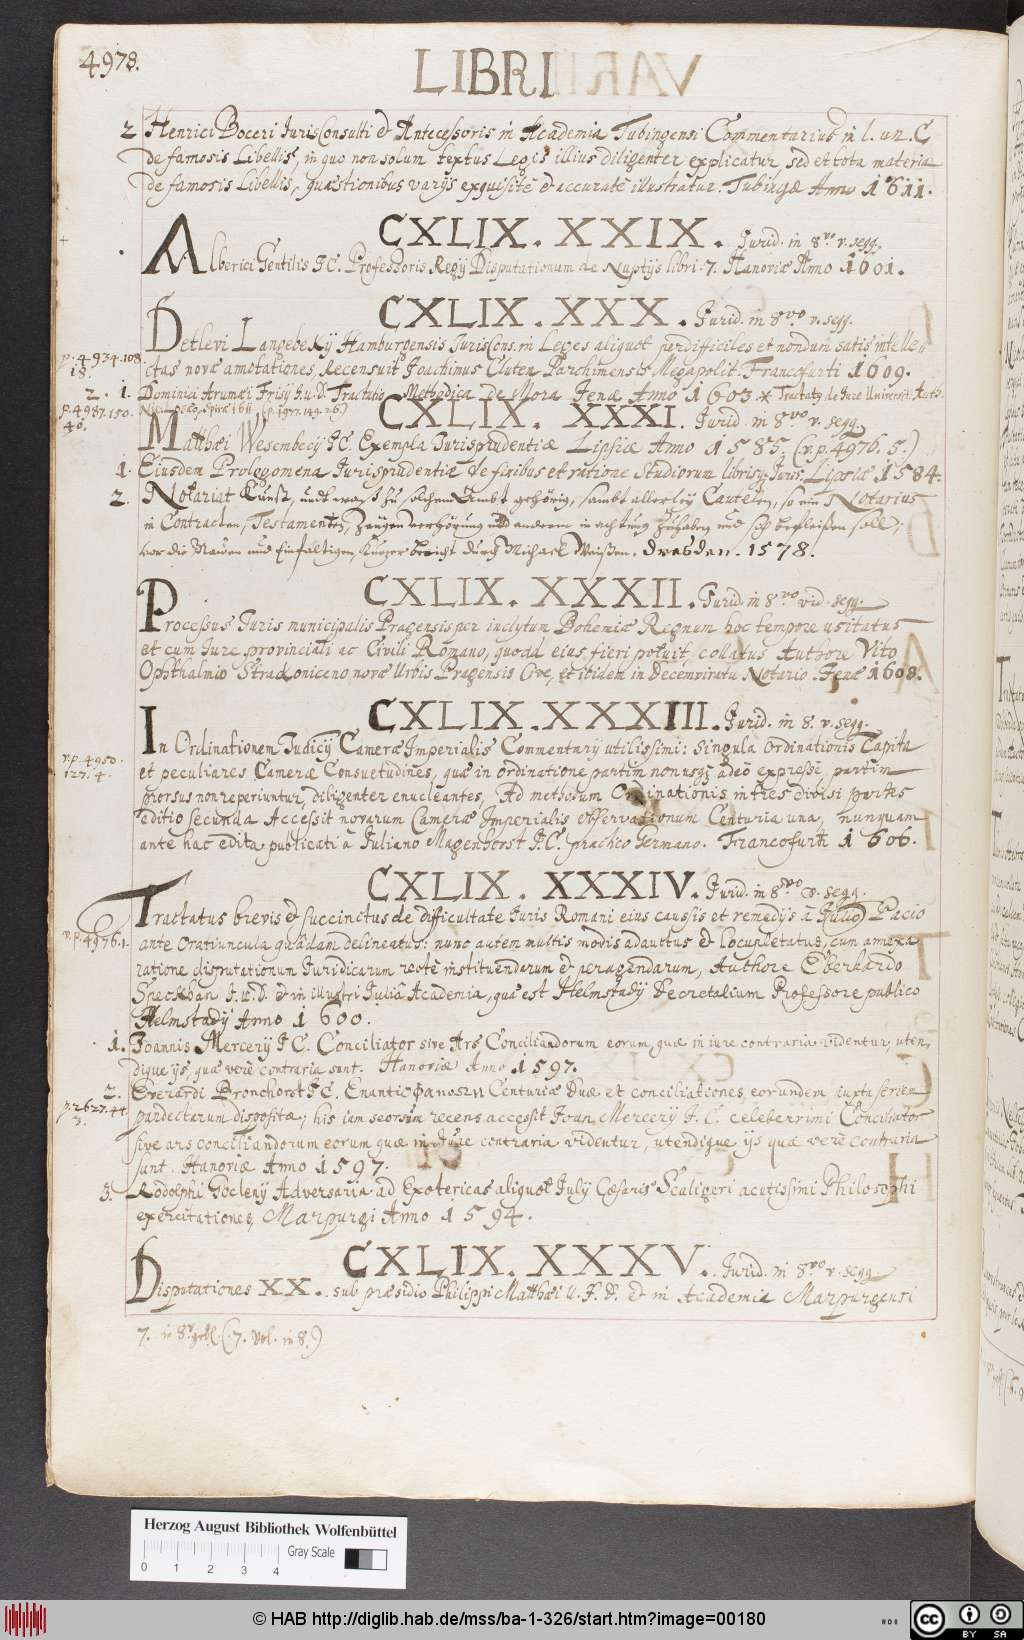 4978.
LIBRI
2 Henrici Boceri JurisConsulti & Antecessoris in Academia Tubingensi Commentarius in l. un. C
de famosis Libellis, in quo non solum textus Legis illius diligenter explicatur, sed et tota materia
de famosis Libellis, quæstionibus varijs exquisitè & accuratè illustratur. Tubingæ Anno 1611.
CXLIX. XXIX. Jurid. in 8.vo v. segg.
Alberici Gentilis JC. Professoris Regij Disputationum de Nuptijs libri. 7. Hanoviæ Anno 1601.
CXLIX. XXX. Jurid. in 8.vo v. segg.
Detlevi Langebekij Hamburgensis JurisCons. in Leges aliquot perdifficiles et nondum satis intelle-
p. 4934. 108.
18.
ctas novæ annotationes, Recensuit Joachimus Cluten Parchimensis Megapolit. Francofurti 1609.
2. 1. Dominici Arumæi Frisij J.u.D. Tractatio Methodica de Mora Jenæ Anno 1603. * Tractatq de Jure Universit. Auth.
p. 4987. 150.
40.
CXLIX. XXXI. Jurid. in 8.vo v. segg.
Matthæi Wesembecij JC. Exempla Jurisprudentiæ Lipsiæ Anno 1585. (v. p. 4976. 5.)
1. Eiusdem Prologomena Jurisprudentiæ de finibus et ratione studiorum librisq. Juris. Lipsiæ 1584.
2. Notariat Kunst, undt was zu solchem Ambt gehörig, sambt allerley Cautelen, so ein Notarius
in Contracten, Testamenten, Zeugen verhörung und anderm in achtung zuhaben und sich befleissen soll,
vor die Rauen und Einfältigen, Kurzer bericht durch Michael Weißen. Dresden. 1578.
CXLIX. XXXII. Jurid. in 8.vo vid. segg.
Processus Juris municipalis Pragensis per inclytum Bohemiæ Regnum hoc tempore usitatus
et cum Jure provinciali ac Civili Romano, quoad eius fieri potuit, collatus Authore Vito
Ophthalmio Strakoniceno novæ Urbis Pragensis Cive, et itidem in Decemviratu Notario. Jenæ 1608.
CXLIX. XXXIII. Jurid. in 8. v. segg.
In Ordinationem Judicij Cameræ Imperialis Commentarij utilissimi: Singula Ordinationis Capita
v. p. 4950.
127. 4.
et peculiares Cameræ Consuetudines, quæ in ordinatione partim non usq; adeò expressè, partim
prorsus non reperiuntur, diligenter enucleantes, Ad methodum Ordinationis in tres divisi partes
editio secunda Accessit novarum Cameræ Imperialis observationum Centuria una, nunquam
ante hac edita publicati à Juliano Magenhorst JC. practico Germano. Francofurti 1606.
CXLIX. XXXIV. Jurid. in 8.vo v. segg.
Tractatus brevis & succinctus de difficultate Juris Romani eius caussis et remedijs à Julio Pacio
v. p. 4976. 1.
ante Oratiuncula quadam delineatus: nunc autem multis modis adauctus & locupletatus, cum annexa
ratione disputationum Juridicarum rectè instituendarum & peragendarum, Authore Eberhardo
Speckhan J.u.D. & in illustri Julia Academia, quæ est Helmstadij Decretalium Professore publico
Helmstadij Anno 1600.
1. Joannis Mercerij JC. Conciliator sive Ars Conciliandorum eorum, quæ in iure contraria videntur, uten,
dique ijs, quæ verè contraria sunt. Hanoviæ Anno 1597.
2. Everardi Bronchorst JC. Enantioφanoszn Centuriæ Duæ et conciliationes eorundem, iuxta seriem
p. 2627. 44
3.
pandectarum dispositæ; his iam seorsim recens accessit Joan. Mercerij J.C. celeberrimi Conciliator
sive ars conciliandorum eorum quæ in Jure contraria videntur, utendique ijs quæ verè contraria
sunt. Hanoviæ Anno 1597.
3. Rodolphi Goclenij Adversaria ad Exotericas aliquot Julij Cæsaris Scaligeri acutissimi Philosophi
exercitationes, Marpurgi Anno 1594.
CXLIX. XXXV. Jurid. in 8.vo v. segg.
Disputationes XX. sub præsidio Philippi Matthæi U.J.D. & in Academia Marpurgensi
7. in 8.vo (.7. vol. in 8.)
Herzog August Bibliothek Wolfenbüttel
Gray Scale
0 1 2 3 4
© HAB http://diglib.hab.de/mss/ba-1-326/start.htm?image=00180
cc BY SA